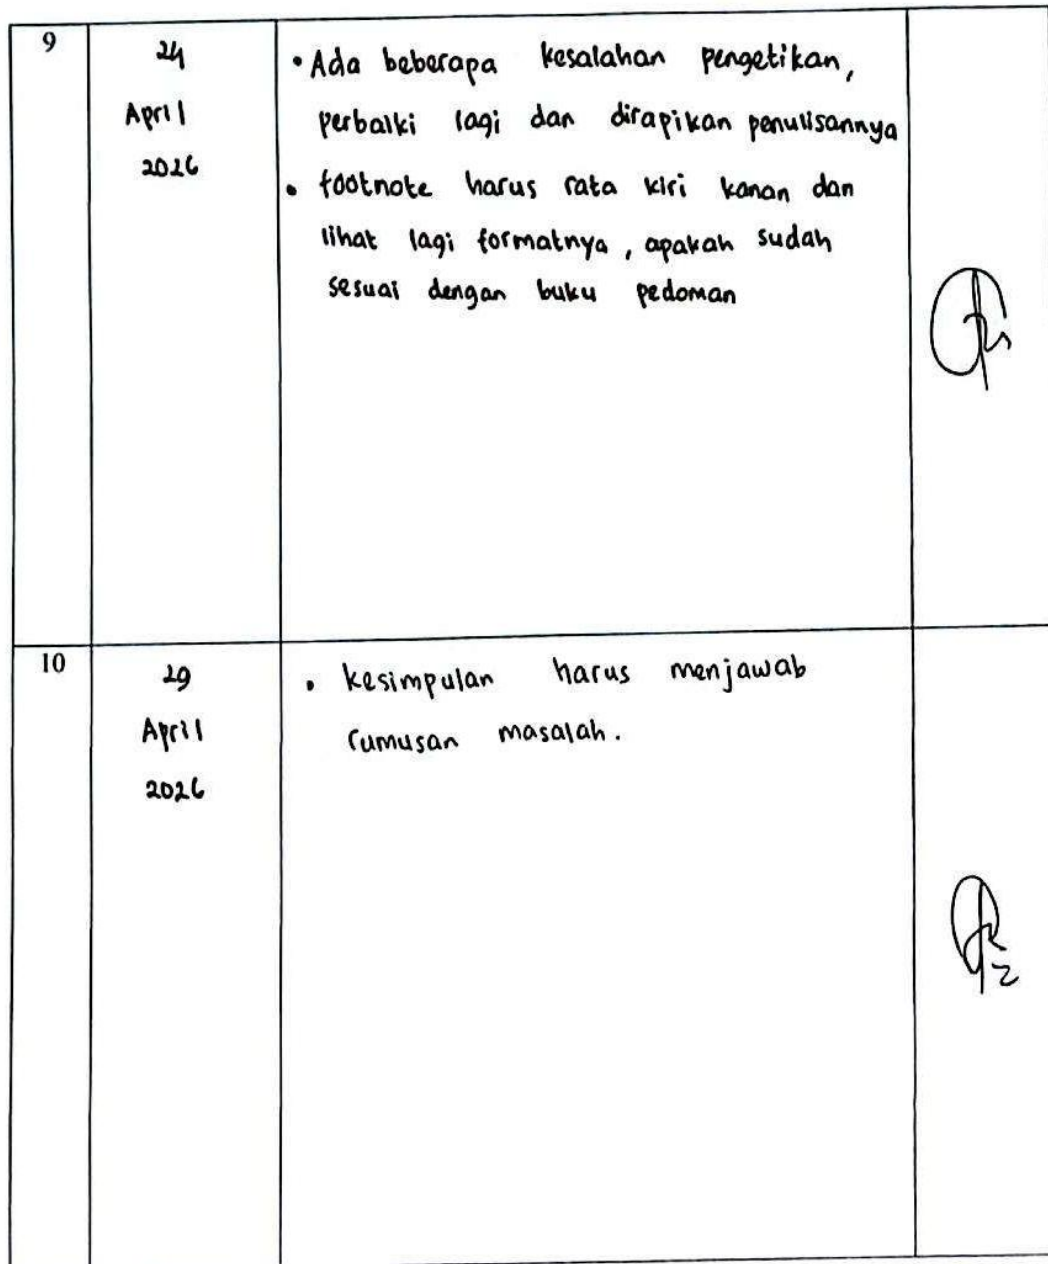 9
24
April
2026
• Ada beberapa kesalahan pengetikan,
perbaiki lagi dan dirapikan penulisannya
• footnote harus rata kiri kanan dan
lihat lagi formatnya, apakah sudah
sesuai dengan buku pedoman
10
29
April
2026
• kesimpulan harus menjawab
rumusan masalah.